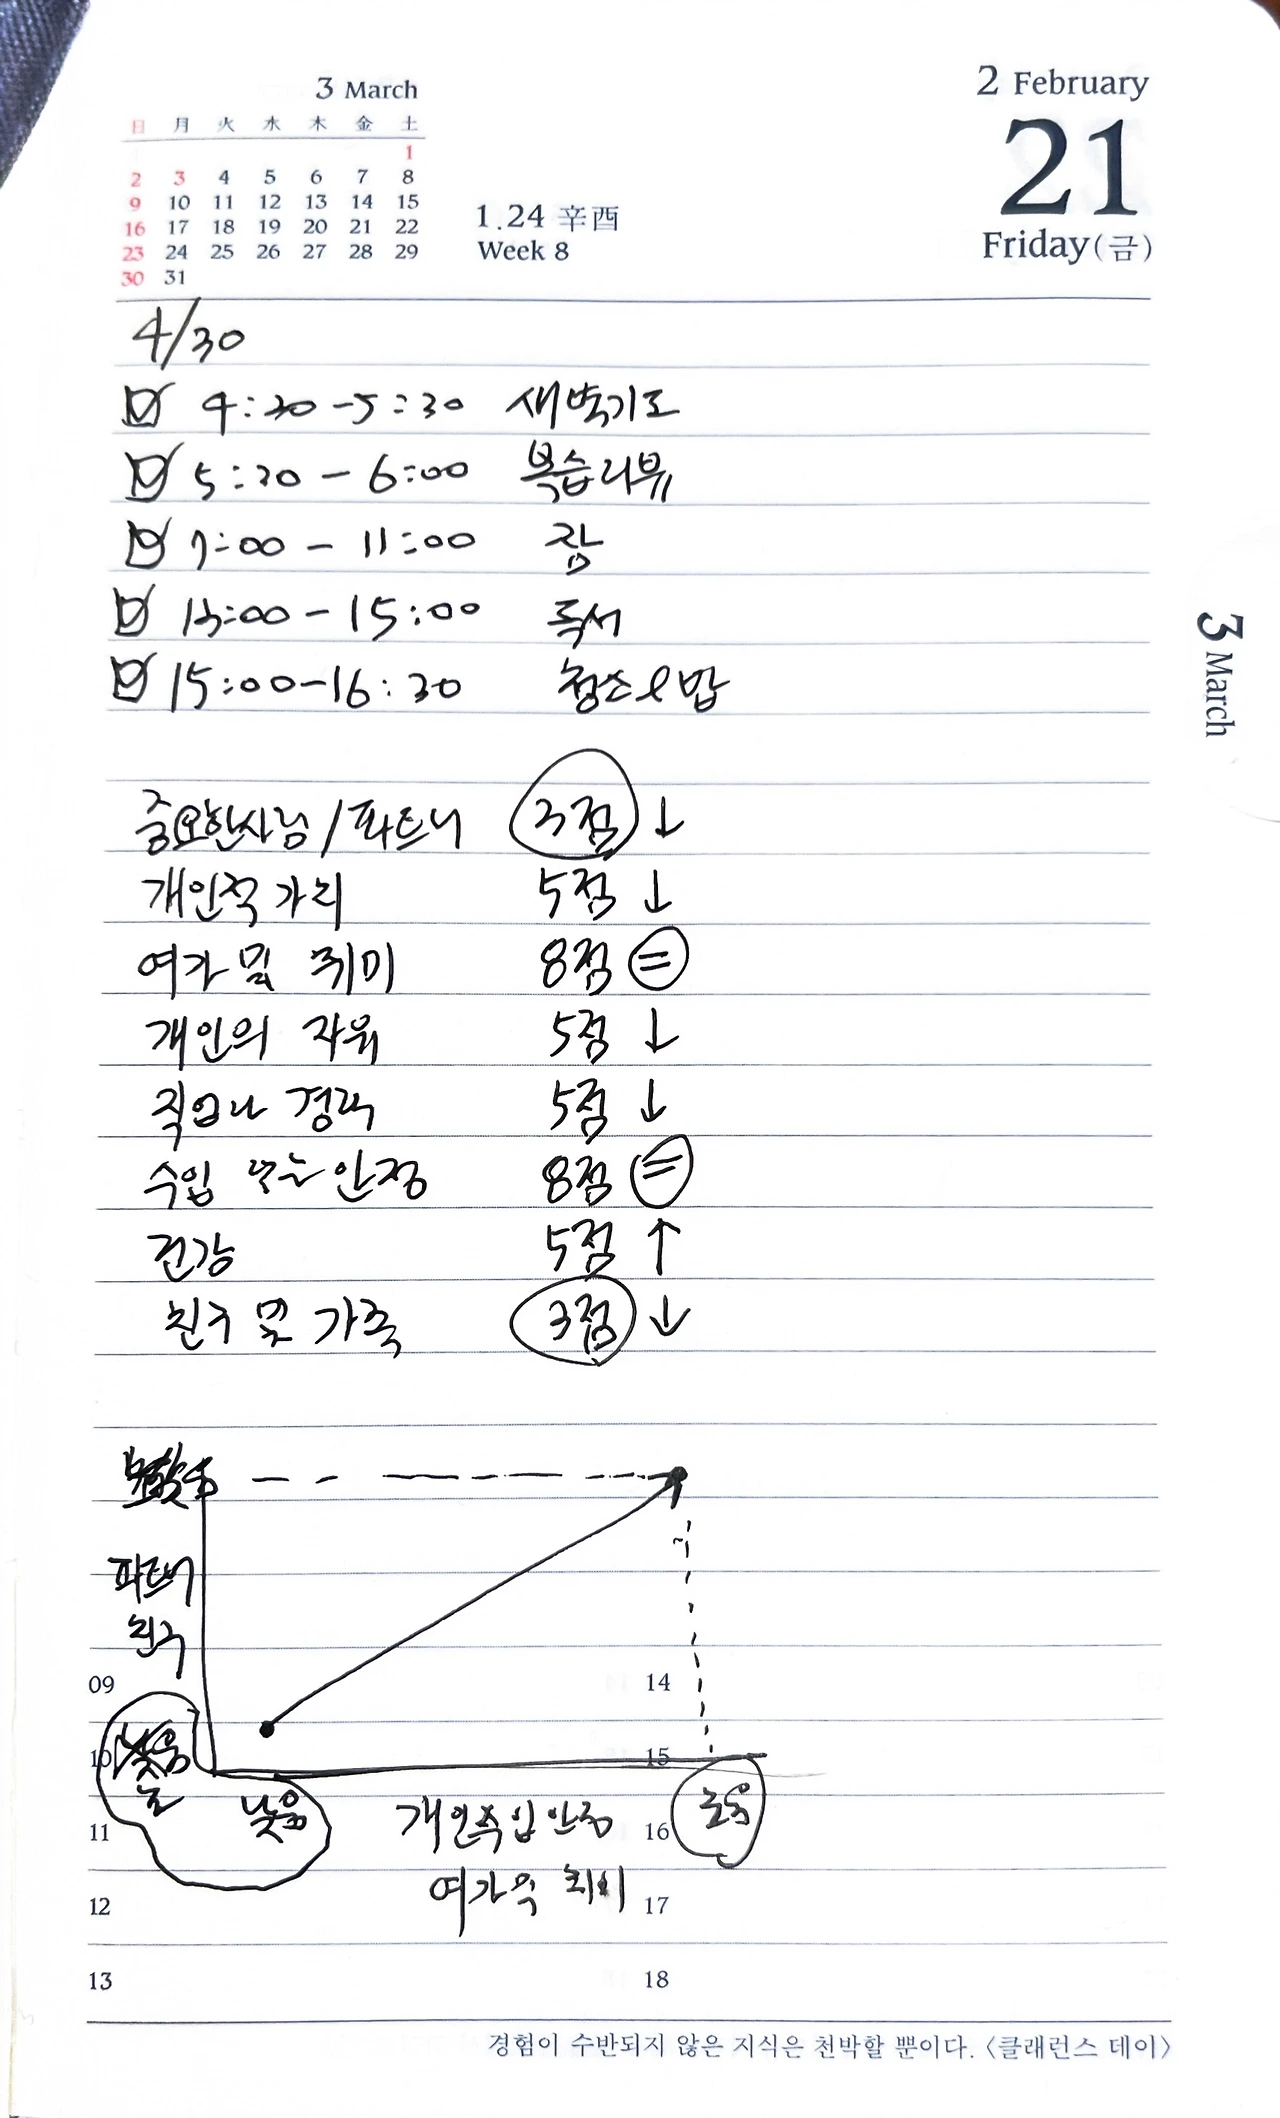 3 March
日 月 火 水 木 金 土
1
2 3 4 5 6 7 8
9 10 11 12 13 14 15
16 17 18 19 20 21 22
23 24 25 26 27 28 29
30 31
1.24 辛酉
Week 8
2 February
21
Friday(금)
4/30
4:30-5:30 새벽기도
5:30-6:00 복습리뷰
7:00-11:00 잠
13:00-15:00 독서
15:00-16:30 청소&밥
3 March
중요한사람/파트너 3점 ↓
개인적 가치 5점 ↓
여가 및 취미 8점 =
개인의 자유 5점 ↓
직업나 경력 5점 ↓
수입 또는 안정 8점 =
건강 5점 ↑
친구 및 가족 3점 ↓
파트너
친구
09 14
10 15
낮음
개인수입안정
높음
11 16
여가와 취미
12 17
13 18
경험이 수반되지 않은 지식은 천박할 뿐이다. 〈클래런스 데이〉